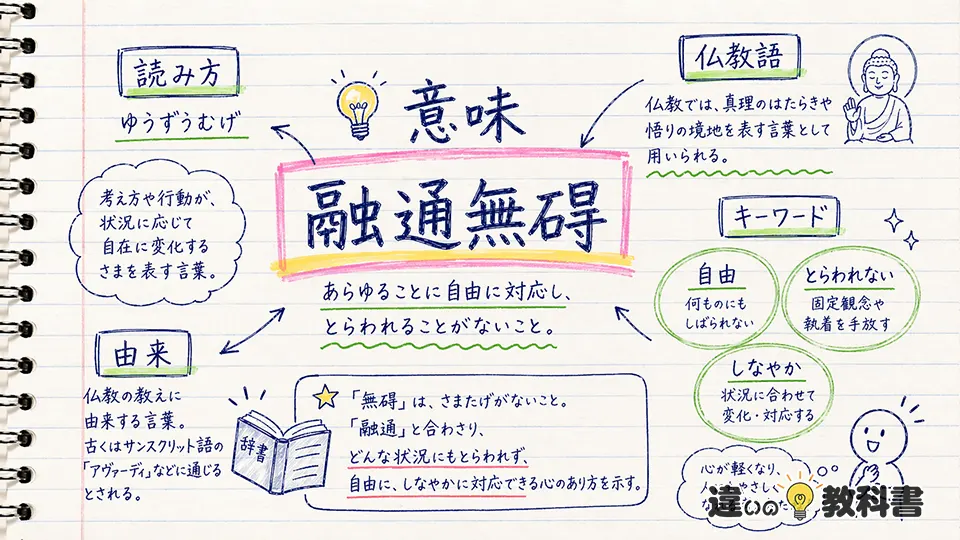 読み方
ゆうずうむげ
考え方や行動が、
状況に応じて
自在に変化する
さまを表す言葉。
意味
融通無碍
あらゆることに自由に対応し、
とらわれることがないこと。
仏教語
仏教では、真理のはたらきや
悟りの境地を表す言葉として
用いられる。
キーワード
自由
何ものにも
しばられない
とらわれない
固定観念や
執着を手放す
しなやか
状況に合わせて
変化・対応する
由来
仏教の教えに
由来する言葉。
古くはサンスクリット語の
「アヴァーディ」などに通じる
とされる。
辞書
「無碍」は、さまたげがないこと。
「融通」と合わさり、
どんな状況にもとらわれず、
自由に、しなやかに対応できる心のあり方を示す。
心が軽くなり、
違いの教科書